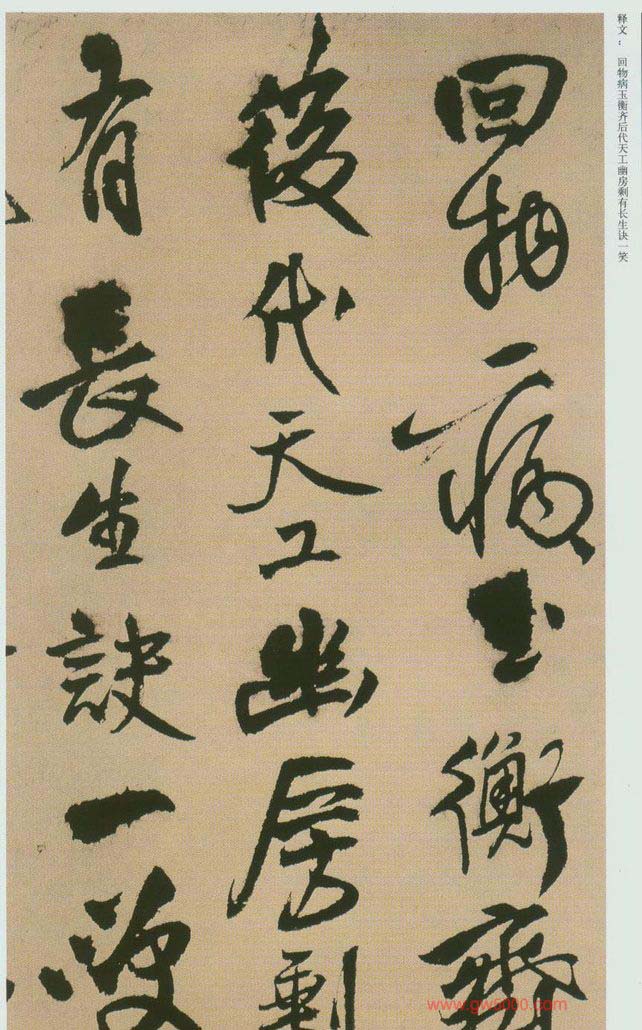 释文： 回物病玉衡齐后代天工幽房剩有长生诀一笑
回物病玉衡齊
後代天工幽房剩
有長生訣一笑
www.gw5000.com